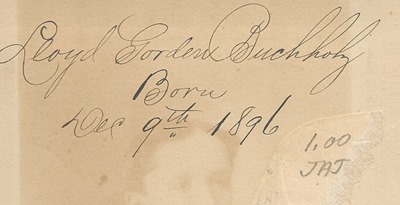 Lloyd Gordon Buchholz
Born
Dec 9th 1896
1.00
JAJ